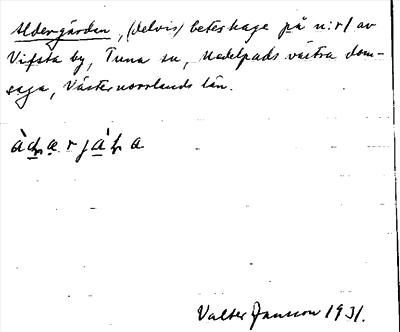 Aldergården, (delvis) beteshage på n:r 1 av
Vifsta by, Tuna sn, Medelpads västra dom-
saga, Västernorrlands län.
Valter Jansson 1931.